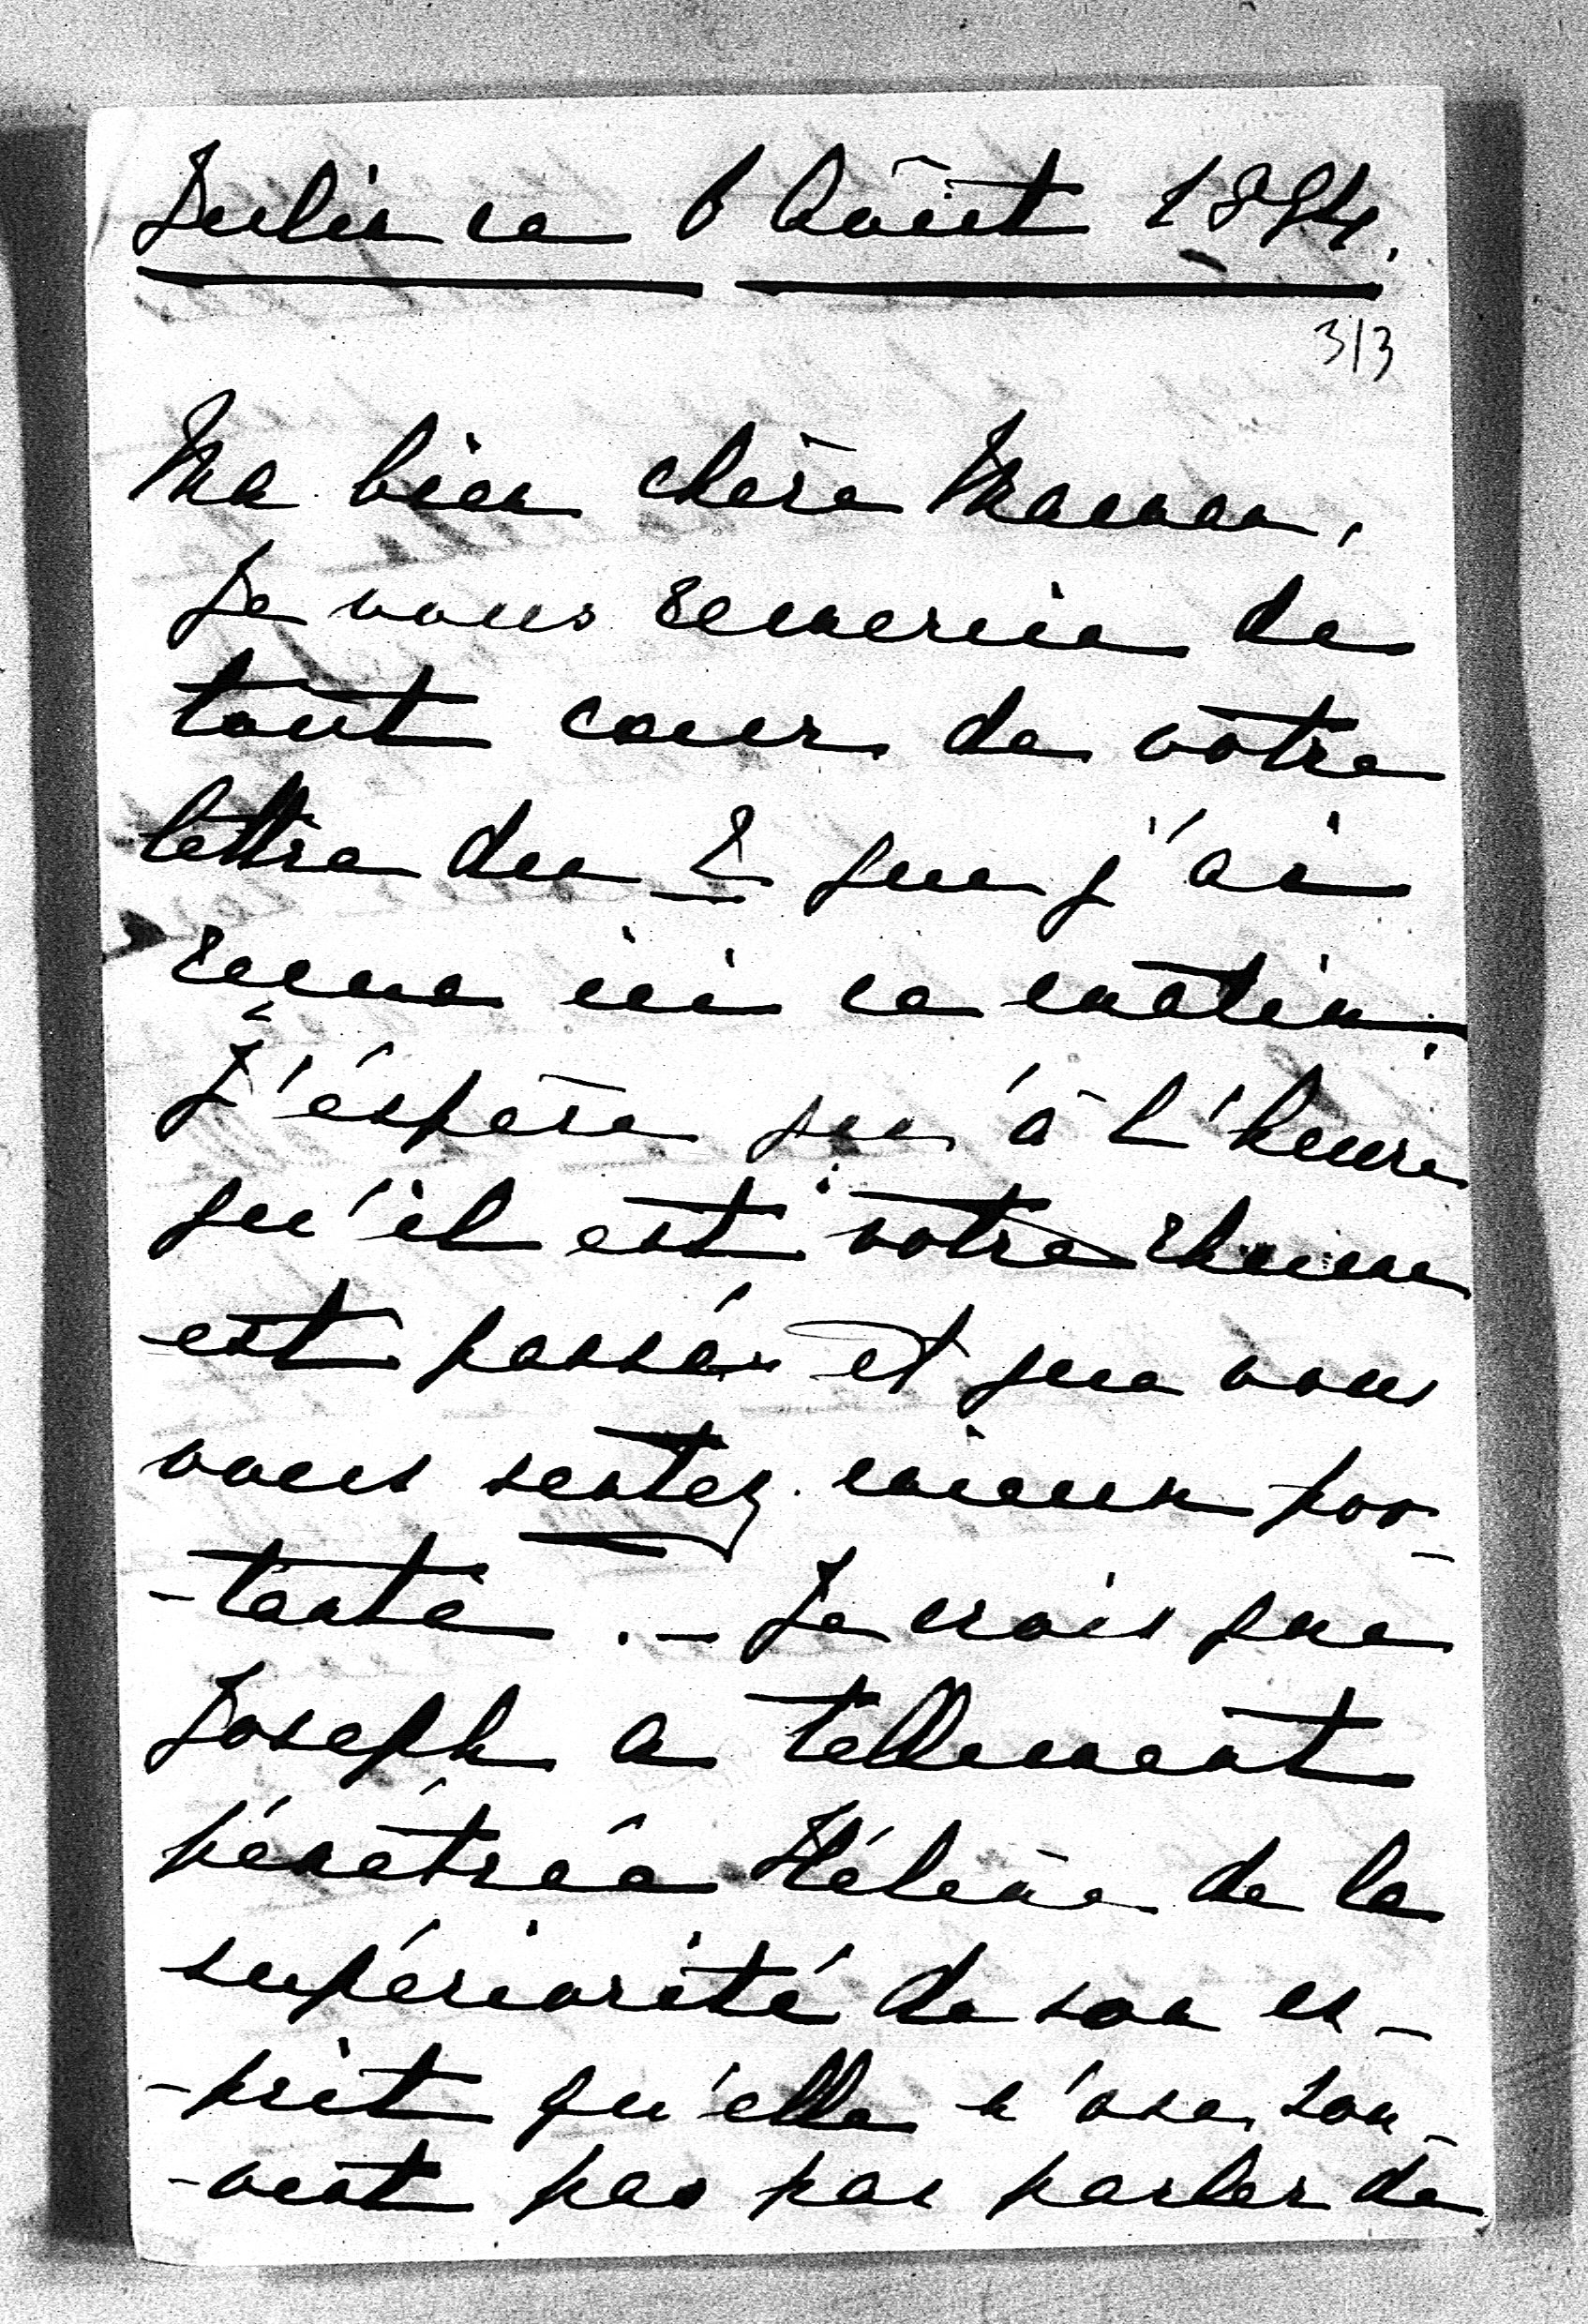 Julin ce 6 Août 1894.
313
Ma bien chère Maman,
Je vous remercie de
tout coeur de votre
lettre du 2 que j'ai
reçue ici ce matin.
J'éspère qu'à l'heure
qu'il est votre rhume
est passé et que vous
vous sentez mieux por-
-tante. - Je crois que
Joseph a tellement
pénétrée Hélène de la
supériorité de son es-
-prit qu'elle n'ose sou-
-vent pas pas parler de